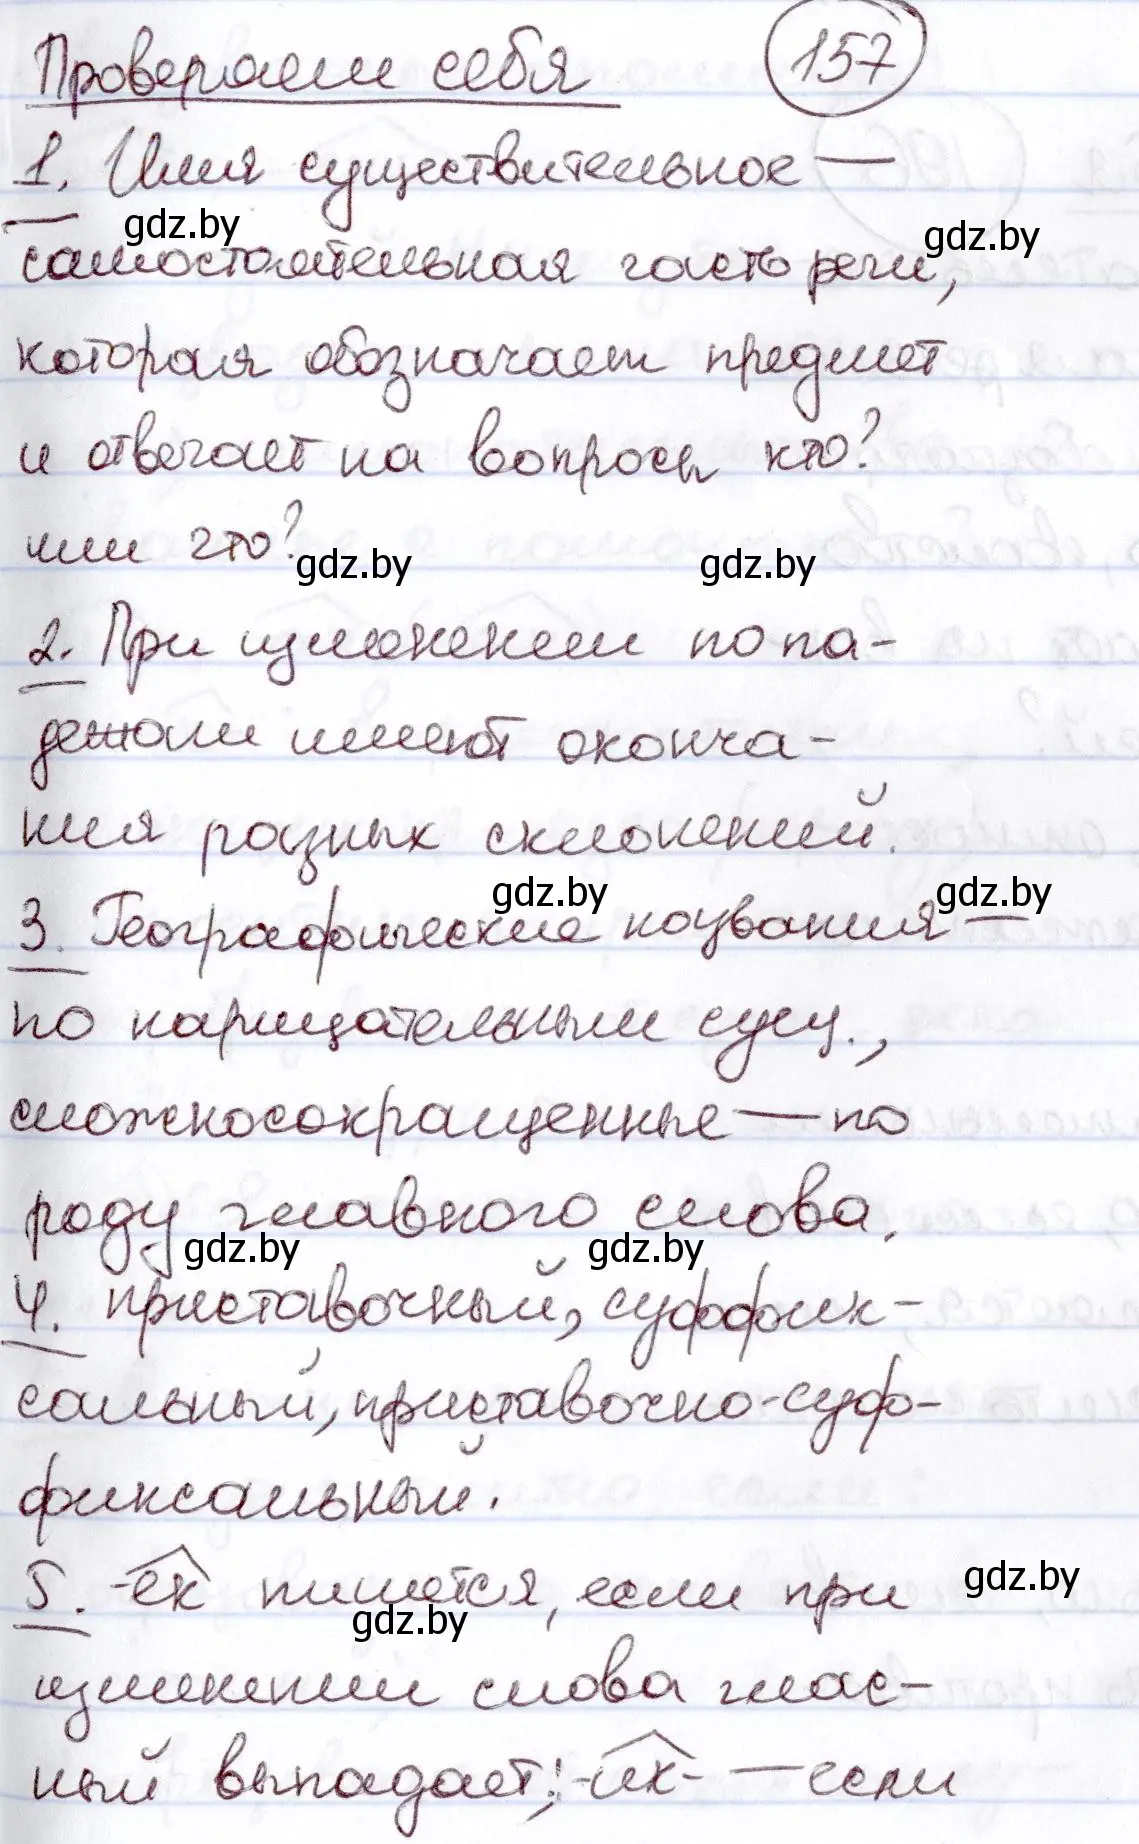 Проверяем себя 157
1. Имя существительное —
gdz.by gdz.by
самостоятельная часть речи,
которая обозначает предмет
и отвечает на вопросы кто?
или что?
gdz.by gdz.by
2. При изменении по па-
дежам имеют оконча-
ния разных склонений.
gdz.by gdz.by
3. Географические названия —
по нарицательным сущ.,
сложносокращенные — по
роду главного слова.
gdz.by gdz.by
4. приставочный, суффик-
сальный, приставочно-суф-
фиксальный.
5. -ек пишется, если при
gdz.by gdz.by
изменении слова глас-
ный выпадает; -ик- — если